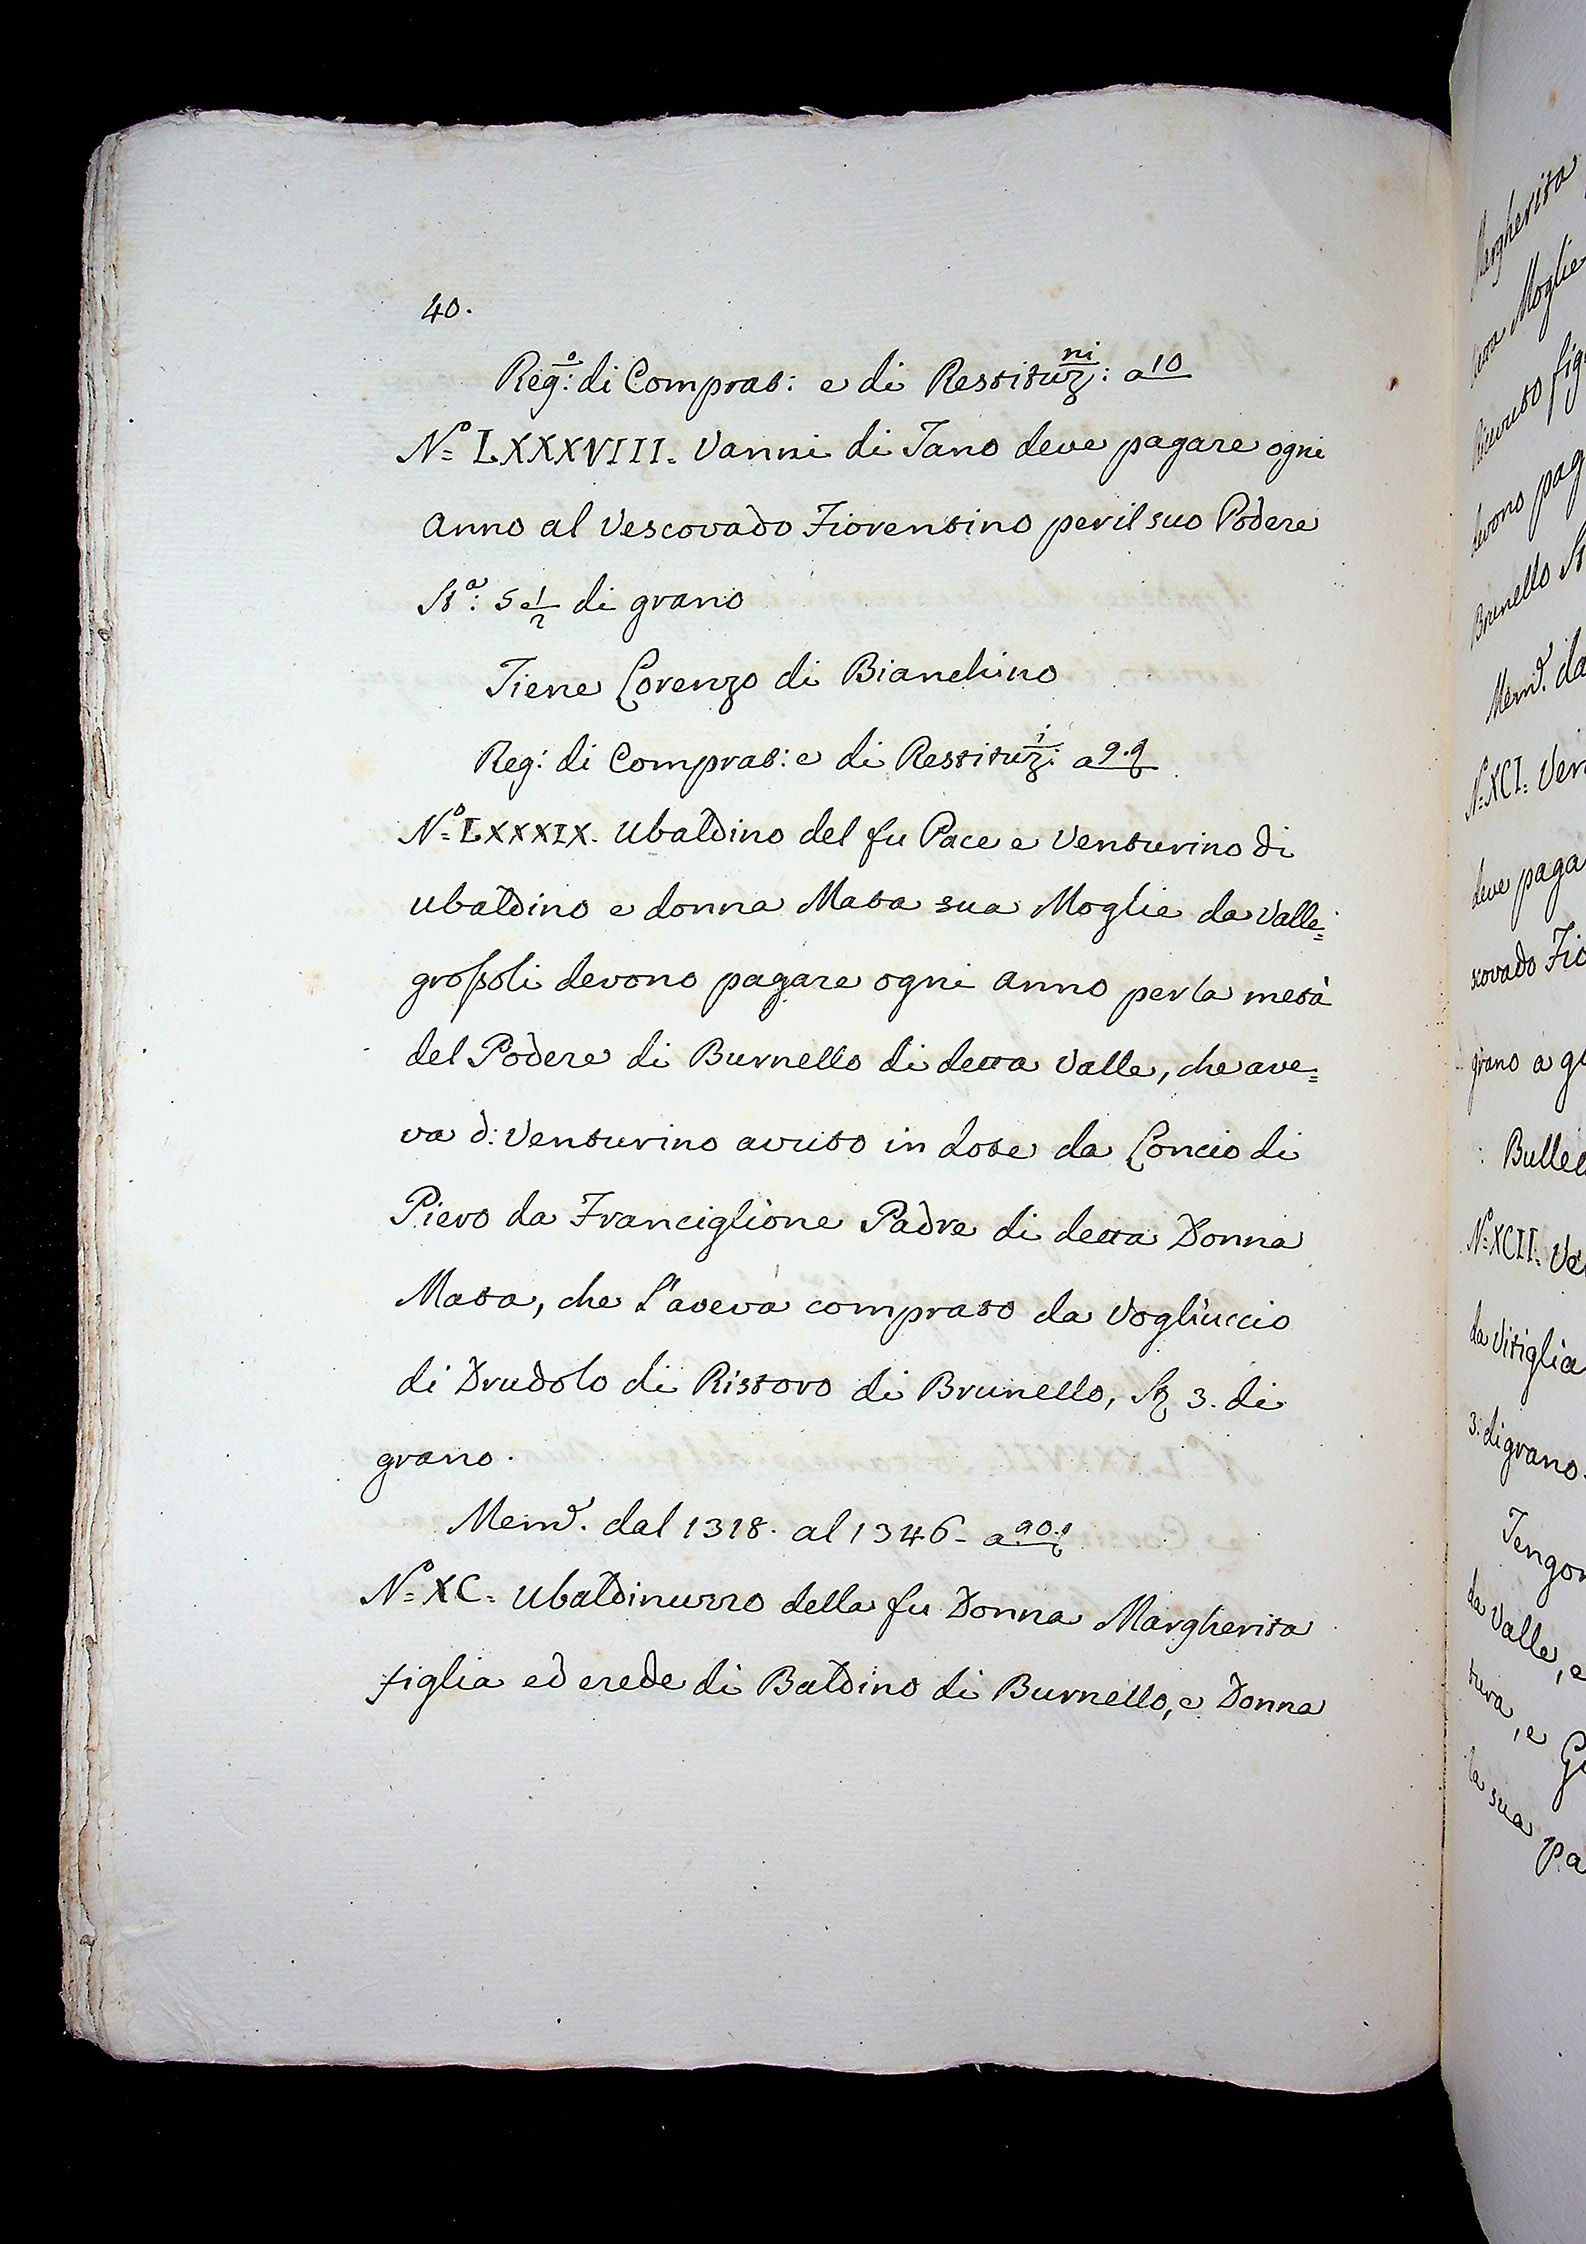 40.
Reg:º di Comprat: e di Restituz:ni a 10
Nº LXXXVIII. Vanni di Tano deve pagare ogni
anno al Vescovado Fiorentino per il suo Podere
Stª: 5 e 1/2 di grano
Tiene Lorenzo di Bianchino
Reg: di Comprat: e di Restituz:i a 9.
Nº LXXXIX. Ubaldino del fu Pace e Venturino di
Ubaldino e donna Mata sua Moglie da Valle=
grossoli devono pagare ogni anno per la metà
del Podere di Burnello di detta Valle, che ave=
va d: Venturino avuto in dote da Concio di
Piero da Franciglione Padre di detta Donna
Mata, che l'aveva comprato da Vogliuccio
di Drudolo di Ristoro di Brunello, St 3. di
grano.
Mem. dal 1318. al 1346 - a 90.
Nº XC. Ubaldinuzzo della fu Donna Margherita
figlia ed erede di Baldino di Burnello, e Donna
Margherita
Moglie
devono pag
Brunello St
Mem. da
Nº XCI. Ven
deve paga
scovado Fio
grano a
Bullet
Nº XCII. Ve
da Vitiglia
3. di grano.
Tengon
da Valle, e
tura, e Gu
la sua Pa